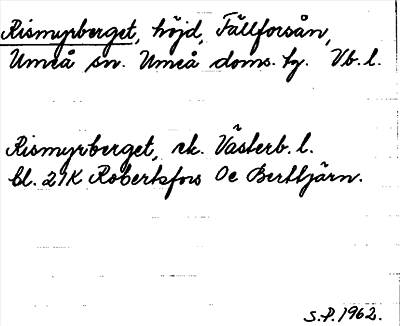 Rismyrberget, höjd, Fällforsån,
Umeå sn. Umeå doms. hg. Vb. l.
Rismyrberget, rk. Västerb. l.
bl. 21K Robertsfors Oc Berttjärn.
S.P. 1962.